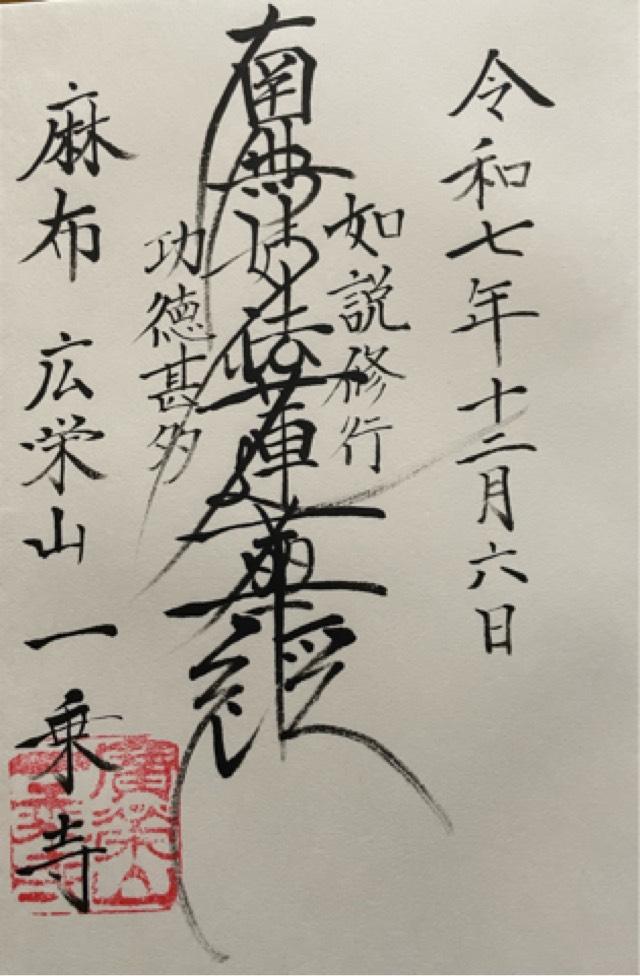 令和七年十二月六日
如説修行
南無妙法蓮華経
功徳甚多
麻布 広栄山 一乗寺
廣榮山
一乗寺